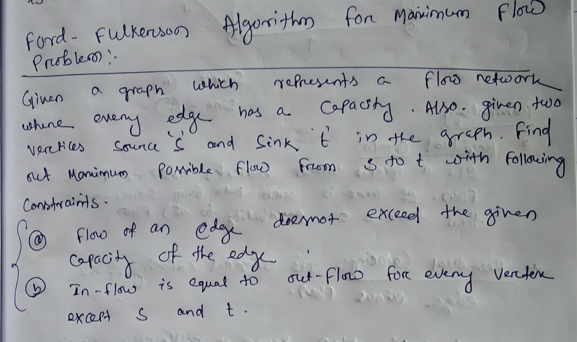 Ford-Fulkerson Algorithm for Maximum Flow
Problem:-
Given a graph which represents a flow network
where every edge has a capacity. Also given two
vertices source 's' and sink 't' in the graph. Find
out Maximum possible flow from s to t with following
constraints.
(a) flow of an edge doesnot exceed the given
capacity of the edge.
(b) In-flow is equal to out-flow for every vertex
except s and t.